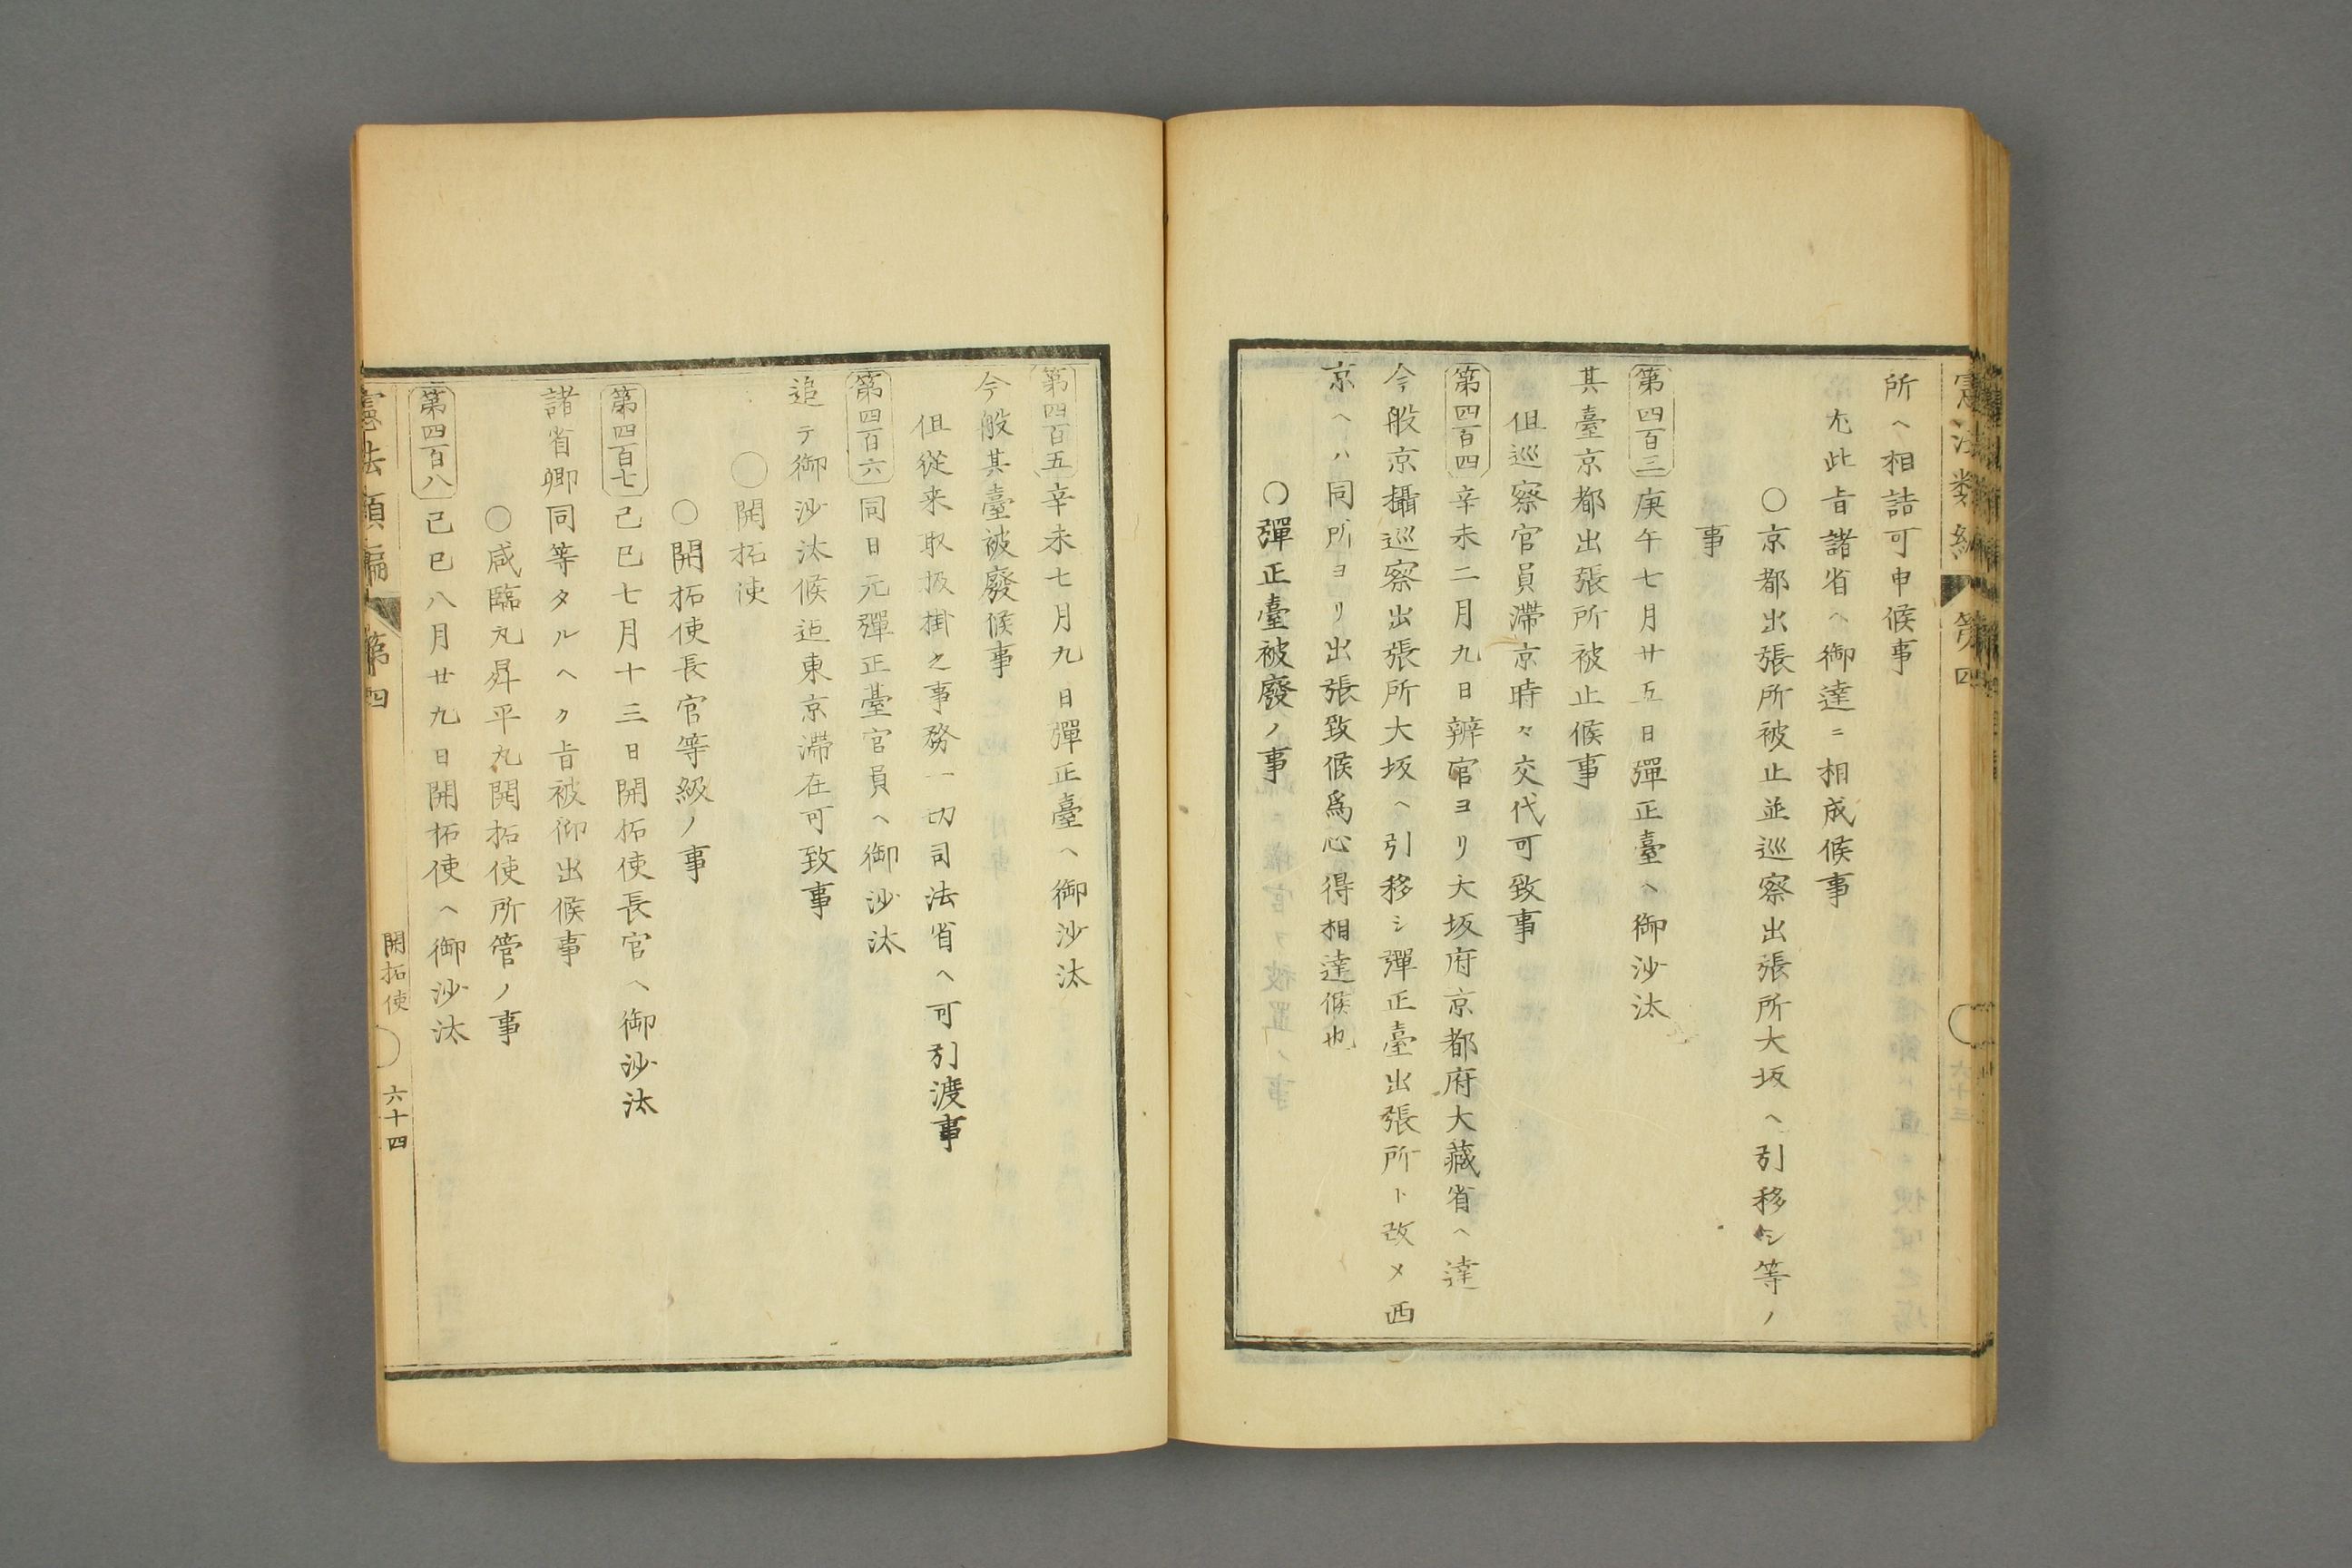 憲法類編 第四
所ヘ相詰可申候事
尤此旨諸省ヘ御達ニ相成候事
〇京都出張所被止並巡察出張所大坂ヘ引移シ等ノ
事
第四百三 庚午七月廿五日彈正臺ヘ御沙汰
其臺京都出張所被止候事
但巡察官員滯京時々交代可致事
第四百四 辛未二月九日辨官ヨリ大坂府京都府大藏省ヘ達
今般京攝巡察出張所大坂ヘ引移シ彈正臺出張所ト改メ西
京ヘハ同所ヨリ出張致候爲心得相達候也
〇彈正臺被廢ノ事
第四百五 辛未七月九日彈正臺ヘ御沙汰
今般其臺被廢候事
但從来取扱掛之事務一切司法省ヘ可引渡事
第四百六 同日元彈正臺官員ヘ御沙汰
追テ御沙汰候迄東京滯在可致事
〇開拓使
〇開拓使長官等級ノ事
第四百七 己巳七月十三日開拓使長官ヘ御沙汰
諸省卿同等タルヘク旨被仰出候事
〇咸臨丸昇平丸開拓使所管ノ事
第四百八 己巳八月廿九日開拓使ヘ御沙汰
憲法類編 第四 開拓使 六十四